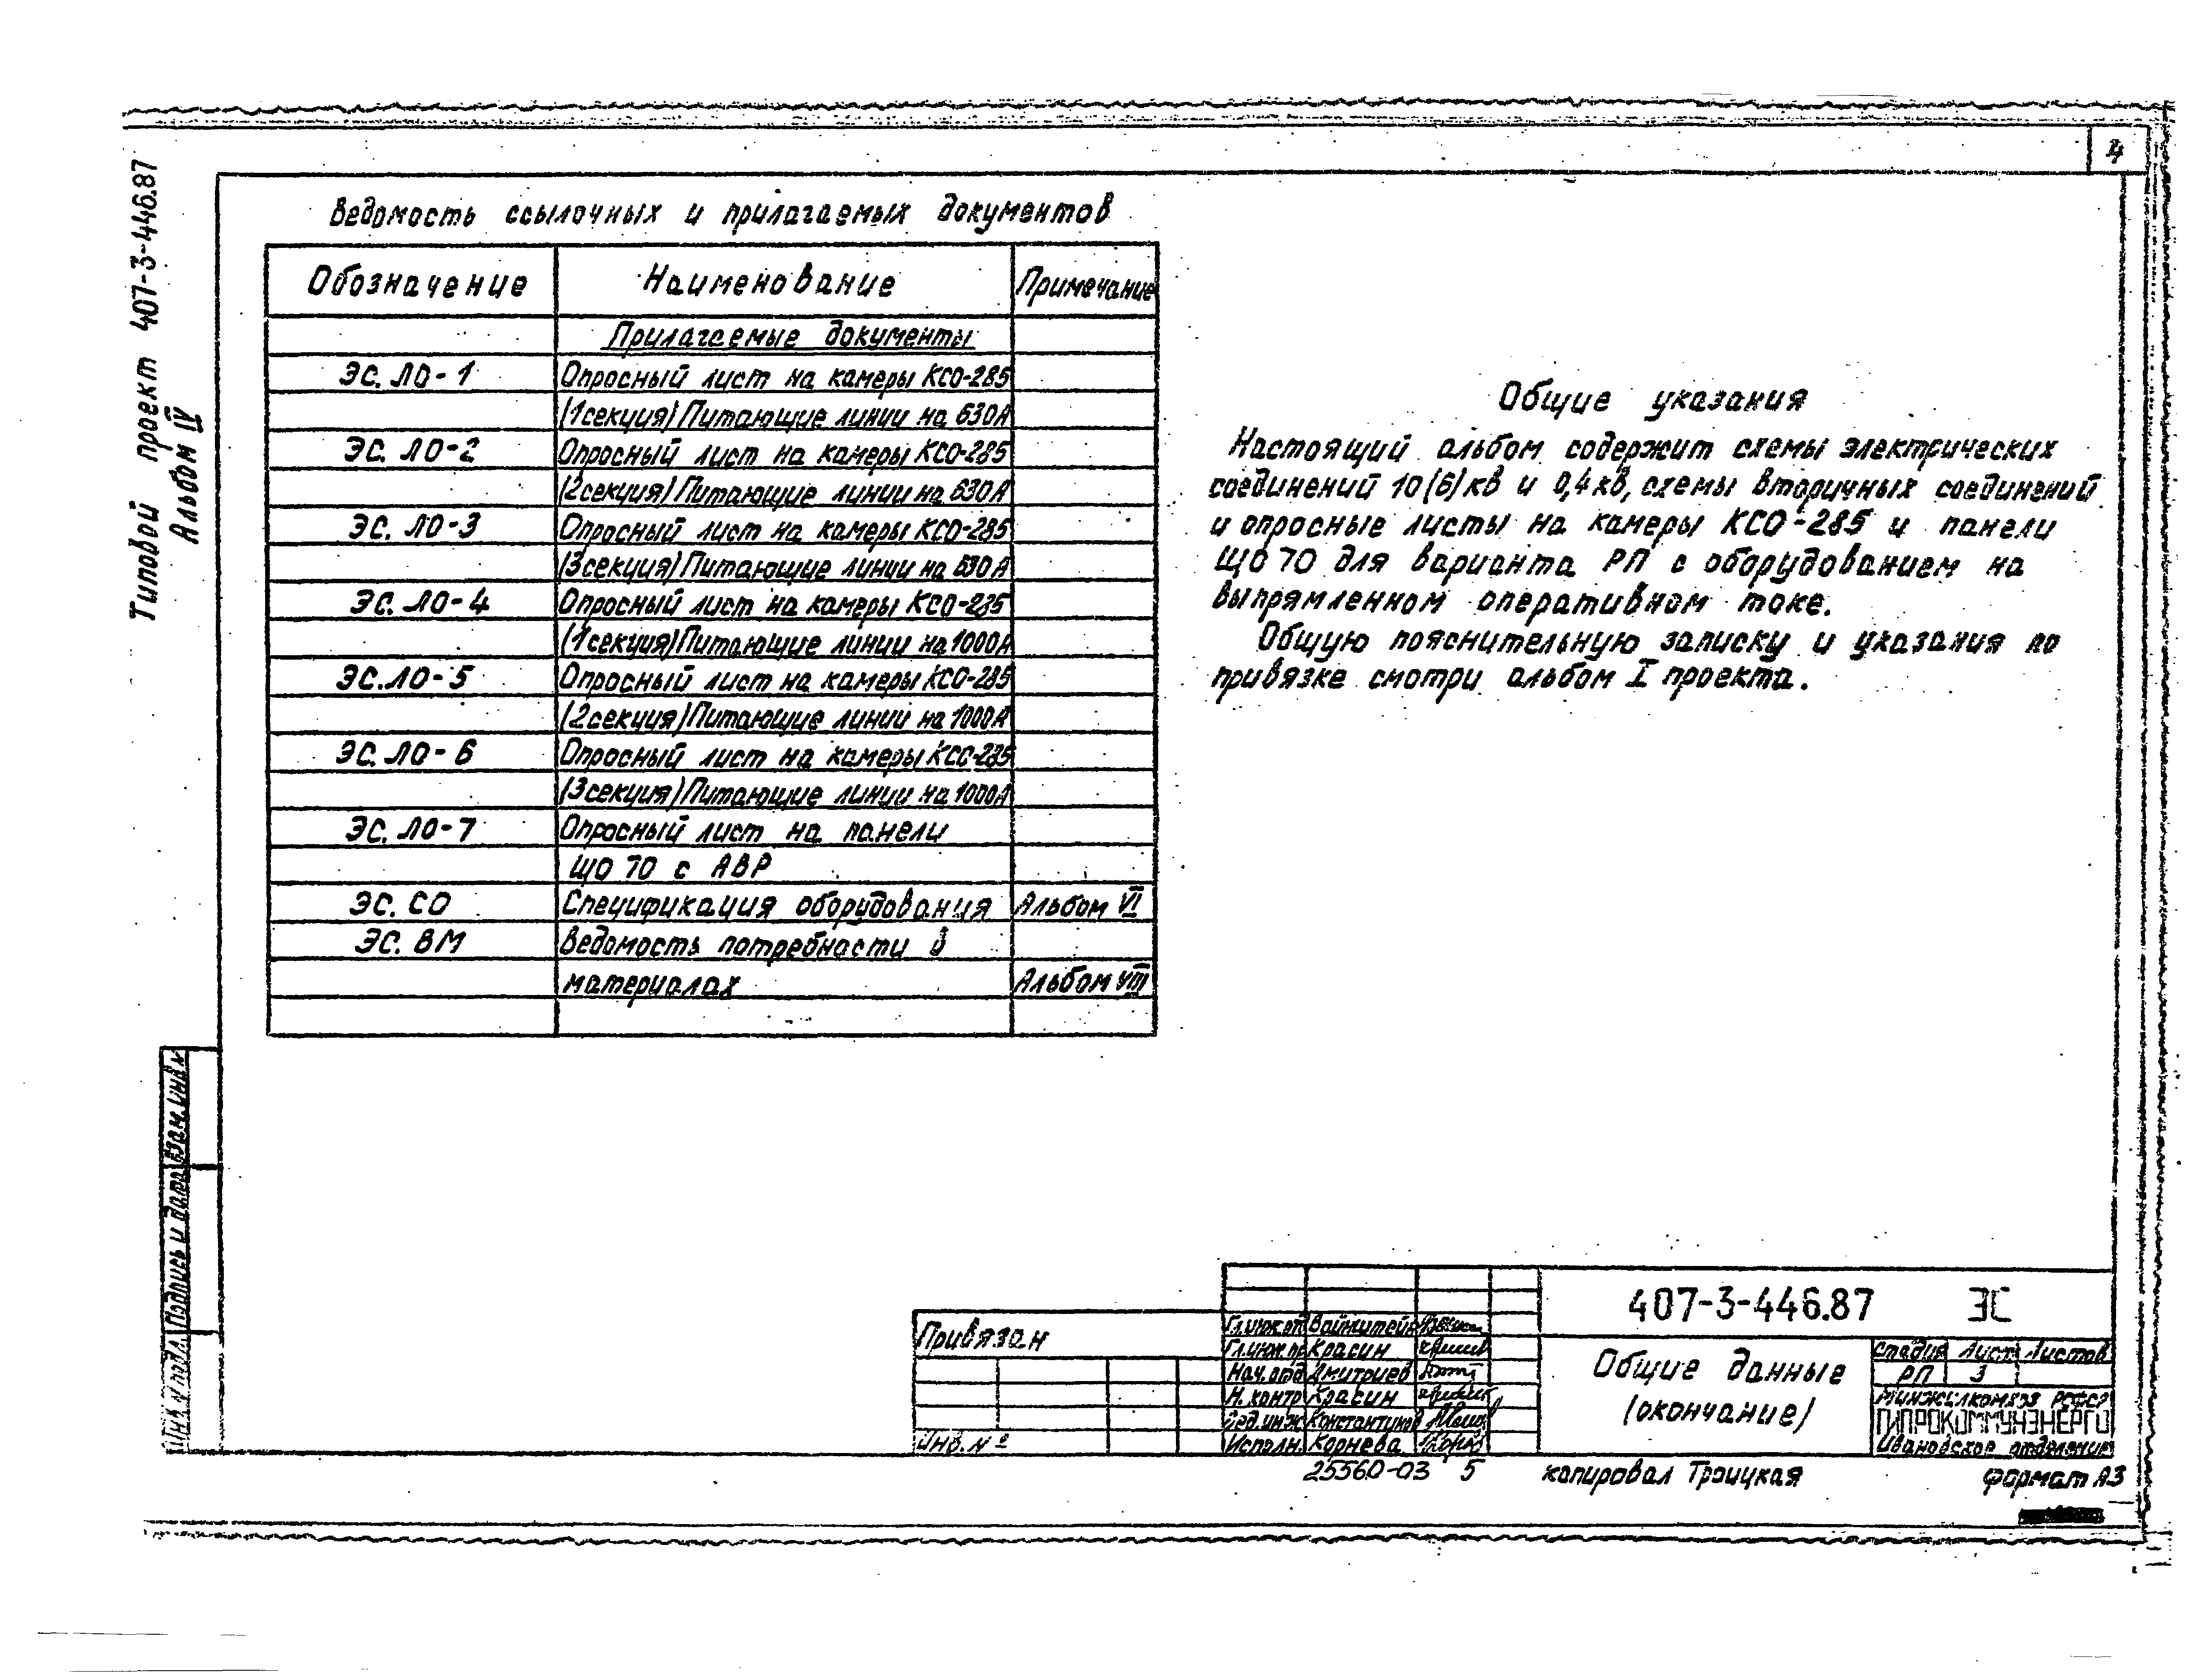 4
Типовой проект 407-3-446.87
Альбом IV
Ведомость ссылочных и прилагаемых документов
Обозначение Наименование Примечание
Прилагаемые документы
ЭС. ЛО-1 Опросный лист на камеры КСО-285
(1секция) Питающие линии на 630А
ЭС. ЛО-2 Опросный лист на камеры КСО-285
(2секция) Питающие линии на 630А
ЭС. ЛО-3 Опросный лист на камеры КСО-285
(3секция) Питающие линии на 630А
ЭС. ЛО-4 Опросный лист на камеры КСО-285
(1секция) Питающие линии на 1000А
ЭС. ЛО-5 Опросный лист на камеры КСО-285
(2секция) Питающие линии на 1000А
ЭС. ЛО-6 Опросный лист на камеры КСО-285
(3секция) Питающие линии на 1000А
ЭС. ЛО-7 Опросный лист на панели
ЩО 70 с АВР
ЭС. СО Спецификация оборудования Альбом VI
ЭС. ВМ Ведомость потребности в
материалах Альбом VIII
Общие указания
Настоящий альбом содержит схемы электрических
соединений 10(6)кв и 0,4кв, схемы вторичных соединений
и опросные листы на камеры КСО-285 и панели
ЩО 70 для варианта РП с оборудованием на
выпрямленном оперативном токе.
Общую пояснительную записку и указания по
привязке смотри альбом I проекта.
Взам. инв.
Подпись и дата
Инв. N подл.
Привязан
Инв. №
Гл.инж.от Вайнштейн
Гл.инж.пр Красин
Нач.отд Дмитриев
Н.контр Красин
Вед.инж Константинов
Исполн. Корнева
407-3-446.87 ЭС
Общие данные
(окончание)
Стадия Лист Листов
РП 3
Минжилкомхоз РСФСР
ГИПРОКОММУНЭНЕРГО
Ивановское отделение
25560-03 5 копировал Троицкая Формат А3